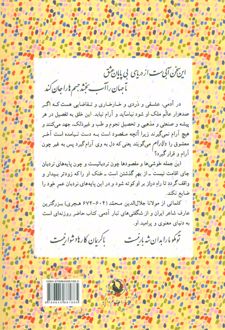 این تن اگر کم تندی راه دلم کم زندی
در آدمی، عشقی و دردی و خارخاری و تقاضایی هست که اگر
صدهزار عالَم ملک او شود نیاساید و آرام نیابد. این خلق به تفصیل در هر
پیشه و صنعتی و منصبی و تحصیل نجوم و طب و غیرذلک، جهد می‌کنند و
هیچ آرام نمی‌گیرند زیرا آنچه مقصود است به دست نیامده است. آخر
معشوق را دلارام می‌گویند یعنی که دل به وی آرام گیرد پس به غیر چون
آرام و قرار گیرد؟
این جمله خوشی‌ها و مقصودها چون نردبانیست و چون پایه‌های نردبان
جای اقامت نیست ... از بهر گذشتن است ... خنک او را که زودتر بیدار و
واقف گردد تا راه دراز بر او کوته شود و در این پایه‌های نردبان عمر خود را
ضایع نکند.
کلماتی از مولانا جلال‌الدین محمد، (۶۰۴-۶۷۲ هجری)، بزرگترین
عارف شاعر ایران و از شگفتی‌های تبار آدمی. کتاب حاضر روزنه‌ای است
به دنیای معنوی و پرامید او.
تو مگو ما را بدان شه بار نیست
با کریمان کارها دشوار نیست